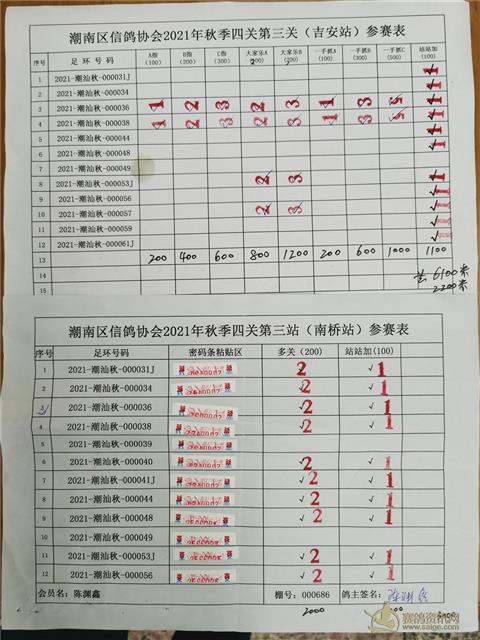 潮南区信鸽协会2021年秋季四关第三关（吉安站）参赛表
序号 足环号码 A指(100) B指(200) C指(300) 大家乐A(200) 大家乐B(300) 一手抓A(100) 一手抓B(300) 一手抓C(500) 站站加(100)
1 2021-潮汕秋-000031J 1
2 2021-潮汕秋-000034 1
3 2021-潮汕秋-000036 1 2 3 2 3 1 3 5 1
4 2021-潮汕秋-000038 1 2 3 2 3 1 3 5 1
5 2021-潮汕秋-000044 1
6 2021-潮汕秋-000048 1
7 2021-潮汕秋-000049
8 2021-潮汕秋-000053J 2 3 1
9 2021-潮汕秋-000056 1
10 2021-潮汕秋-000057 2 3 1
11 2021-潮汕秋-000059 1
12 2021-潮汕秋-000061J
13 200 400 600 800 1200 200 600 1000 1100
14 6100
15 2200
潮南区信鸽协会2021年秋季四关第三站（南桥站）参赛表
序号 足环号码 密码条粘贴区 多关(200) 站站加(100)
1 2021-潮汕秋-000031J 2 √1
2 2021-潮汕秋-000034 √2 √1
3 2021-潮汕秋-000036 √2 √1
4 2021-潮汕秋-000038 √2 √1
5 2021-潮汕秋-000039
6 2021-潮汕秋-000040 √2 √1
7 2021-潮汕秋-000041J √2 √1
8 2021-潮汕秋-000044 √2 √1
9 2021-潮汕秋-000048 √2 √1
10 2021-潮汕秋-000049
11 2021-潮汕秋-000053J √2 √1
12 2021-潮汕秋-000056 √2 √1
会员名：陈渊鑫 棚号：000686 鸽主签名：
2000
赛鸽资讯网
www.saige.com